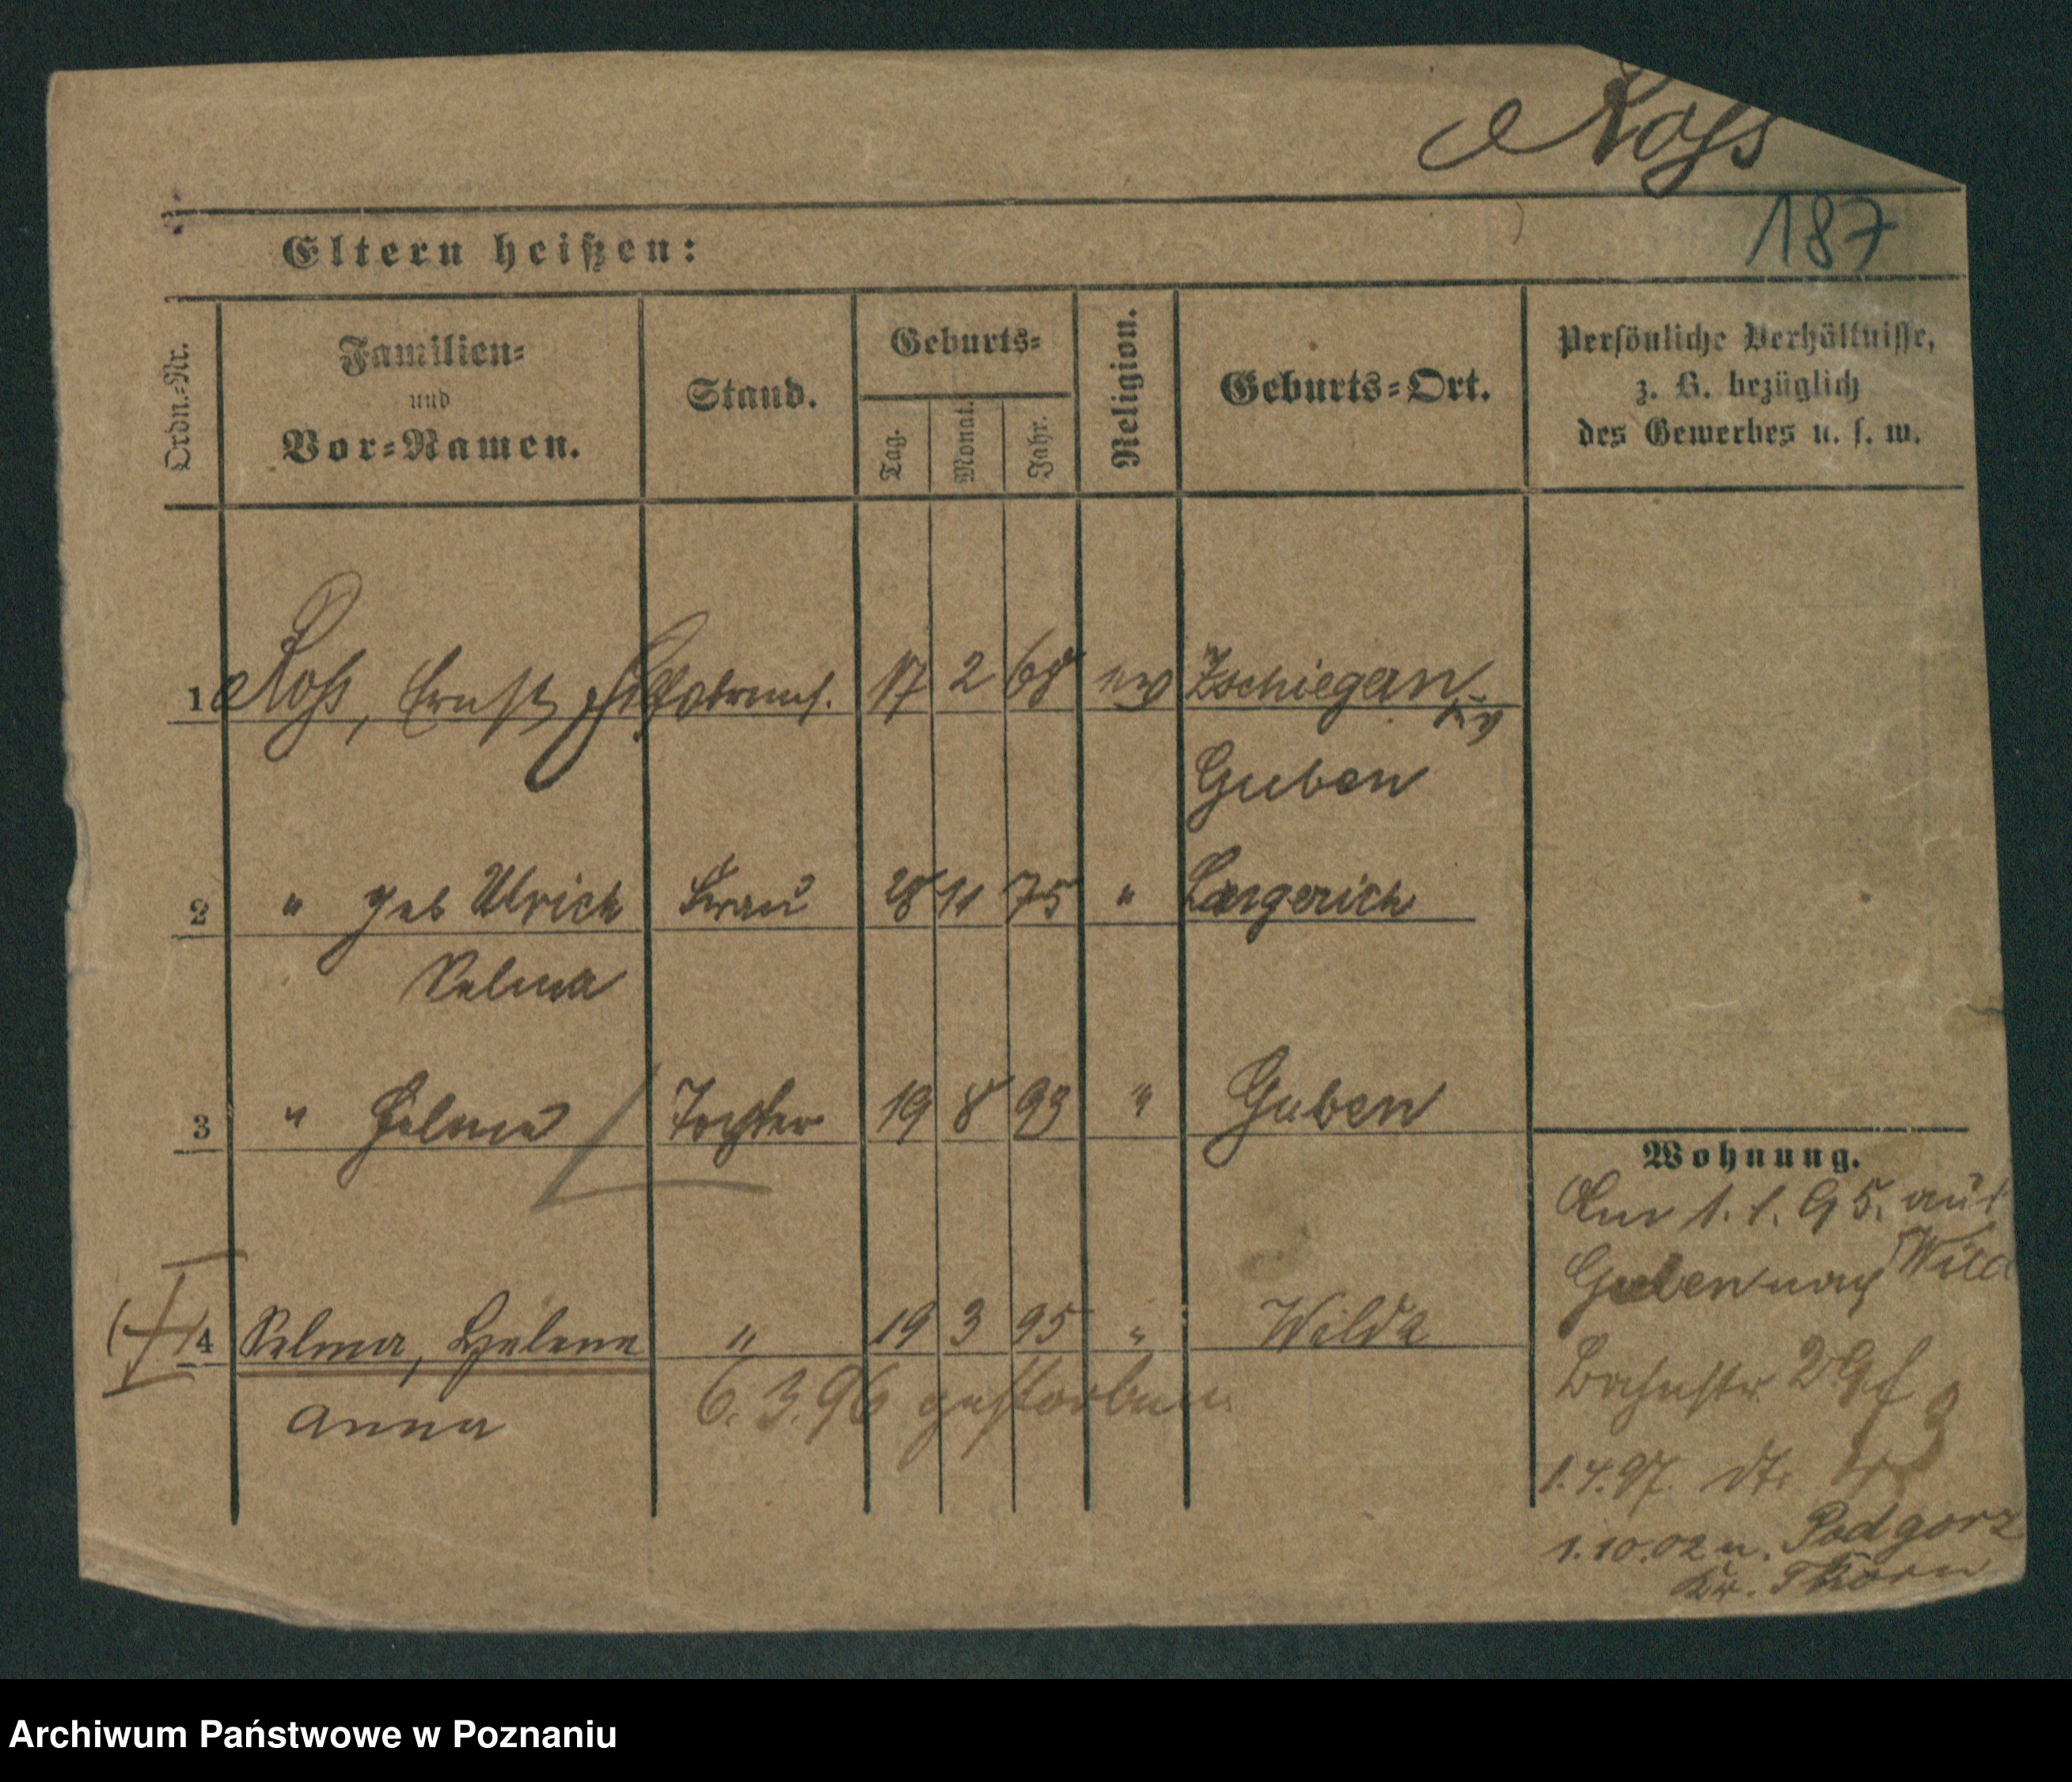 Roß
187
Eltern heißen:
Ordn.-Nr.
Familien-
und
Vor-Namen.
Stand.
Geburts-
Tag.
Monat.
Jahr.
Religion.
Geburts-Ort.
Persönliche Verhältnisse,
z. B. bezüglich
des Gewerbes u. s. w.
1 Roß, Ernst 17 2 68 ev Zschiegern
Kr
Guben
2 " geb Ulrich Frau 28 11 75 " Largerich
Selma
3 " Helma Tochter 19 8 93 " Guben
4 Selma, Helene " 19 3 95 " Wilda
Anna
6. 3. 96 gestorben
Wohnung.
Am 1. 1. 95. aus
Guben nach Wild
Bahnstr
1.4.97.
1.10.02 n. Podgorz
Kr. Thorn
Archiwum Państwowe w Poznaniu